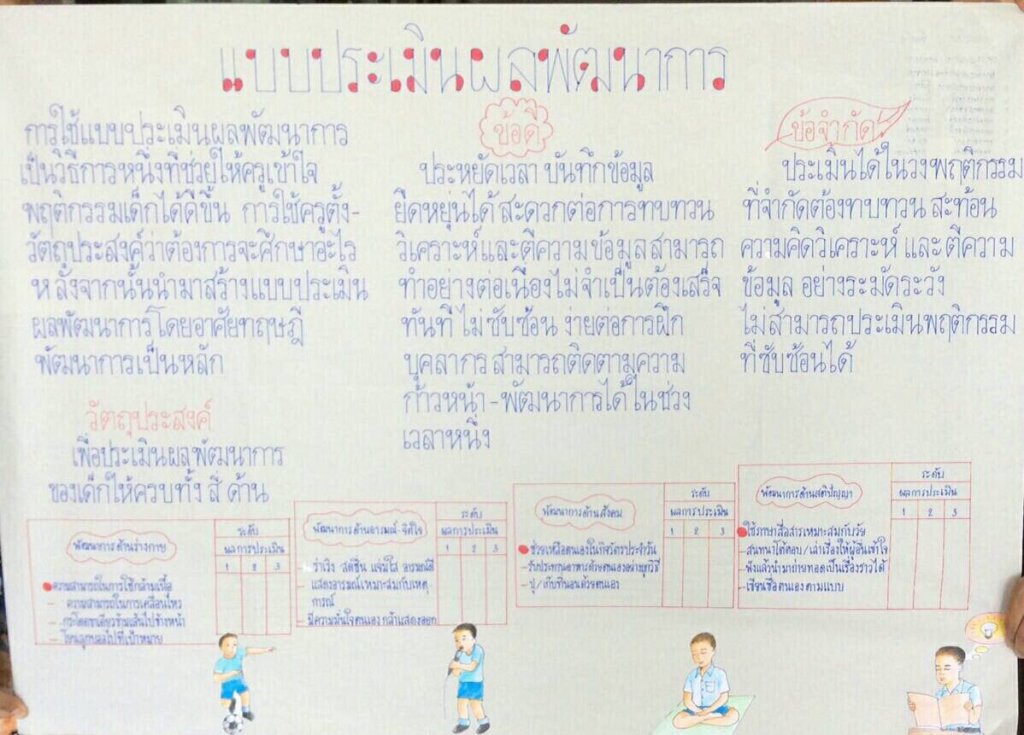 แบบประเมินผลพัฒนาการ
การใช้แบบประเมินผลพัฒนาการ
เป็นวิธีการหนึ่งที่ช่วยให้ครูเข้าใจ
พฤติกรรมเด็กได้ดีขึ้น การใช้ครูตั้ง-
วัตถุประสงค์ว่าต้องการจะศึกษาอะไร
หลังจากนั้นนำมาสร้างแบบประเมิน
ผลพัฒนาการโดยอาศัยทฤษฎี
พัฒนาการเป็นหลัก
วัตถุประสงค์
เพื่อประเมินผลพัฒนาการ
ของเด็กให้ครบทั้ง สี่ ด้าน
ข้อดี
ประหยัดเวลา บันทึกข้อมูล
ยืดหยุ่นได้ สะดวกต่อการทบทวน
วิเคราะห์และตีความข้อมูลสามารถ
ทำอย่างต่อเนื่องไม่จำเป็นต้องเสร็จ
ทันที ไม่ซับซ้อน ง่ายต่อการฝึก
บุคลากร สามารถติดตามความ
ก้าวหน้า - พัฒนาการได้ในช่วง
เวลาหนึ่ง
ข้อจำกัด
ประเมินได้ในวงพฤติกรรม
ที่จำกัดต้องทบทวน สะท้อน
ความคิดวิเคราะห์ และ ตีความ
ข้อมูล อย่างระมัดระวัง
ไม่สามารถประเมินพฤติกรรม
ที่ซับซ้อนได้
พัฒนาการด้านร่างกาย
ระดับ
ผลการประเมิน
1 2 3
ความสามารถในการใช้กล้ามเนื้อ
- ความสามารถในการเคลื่อนไหว
- กระโดดขาเดียวข้ามเส้นไปข้างหน้า
- โยนลูกบอลไปที่เป้าหมาย
พัฒนาการด้านอารมณ์-จิตใจ
ระดับ
ผลการประเมิน
1 2 3
ร่าเริง สดชื่น แจ่มใส อารมณ์ดี
- แสดงอารมณ์เหมาะสมกับเหตุ
การณ์
- มีความมั่นใจตนเอง กล้าแสดงออก
พัฒนาการด้านสังคม
ระดับ
ผลการประเมิน
1 2 3
ช่วยเหลือตนเองในกิจวัตรประจำวัน
- รับประทานอาหารด้วยตนเองอย่างถูกวิธี
- ปู/เก็บที่นอนด้วยตนเอง
พัฒนาการด้านสติปัญญา
ระดับ
ผลการประเมิน
1 2 3
ใช้ภาษาสื่อสารเหมาะสมกับวัย
- สนทนาโต้ตอบ/เล่าเรื่องให้ผู้อื่นเข้าใจ
- ฟังแล้วนำมาถ่ายทอดเป็นเรื่องราวได้
- เขียนชื่อตนเองตามแบบ